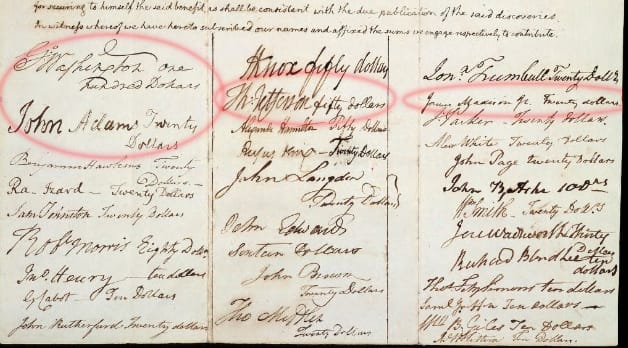 for securing to himself the said benefit, as shall be consistent with the due publication of the said discoveries.
In witness whereof we have hereto subscribed our names and affixed the sums we engage respectively to contribute.
Go Washington one
hundred Dollars
John Adams Twenty
Dollars
Benjamin Hawkins Twenty
Dollars
Ra. Izard – Twenty Dollars
Sam Johnston Twenty Dollars
Robt Morris Eighty Dollars
Jno. Henry – ten dollars
G Cabot Ten Dollars
John Rutherfurd Twenty dollars
Knox fifty dollars
Th: Jefferson fifty dollars
Alexander Hamilton Fifty Dollars
Rufus King – Twenty Dollars
John Langdon
Twenty Dollars
John Edwards
Sixteen Dollars
John Brown
Twenty Dollars
Tho
Twenty Dollars
Jona Trumbull Twenty Dolls
James Madison Jr. Twenty dollars
J Parker – Twenty Dollars
Alexr White Twenty Dollars
John Page twenty Dollars
John B Ashe 10 Drs
Wm Smith – Twenty Dolls
Jere Wadsworth Thirty
Dollars
Richard Bland Lee ten
dollars
Thos Fitzsimons ten dollars
Saml Griffin Ten Dollars –
Wm B. Giles Ten Dollars
Ten Dollars.